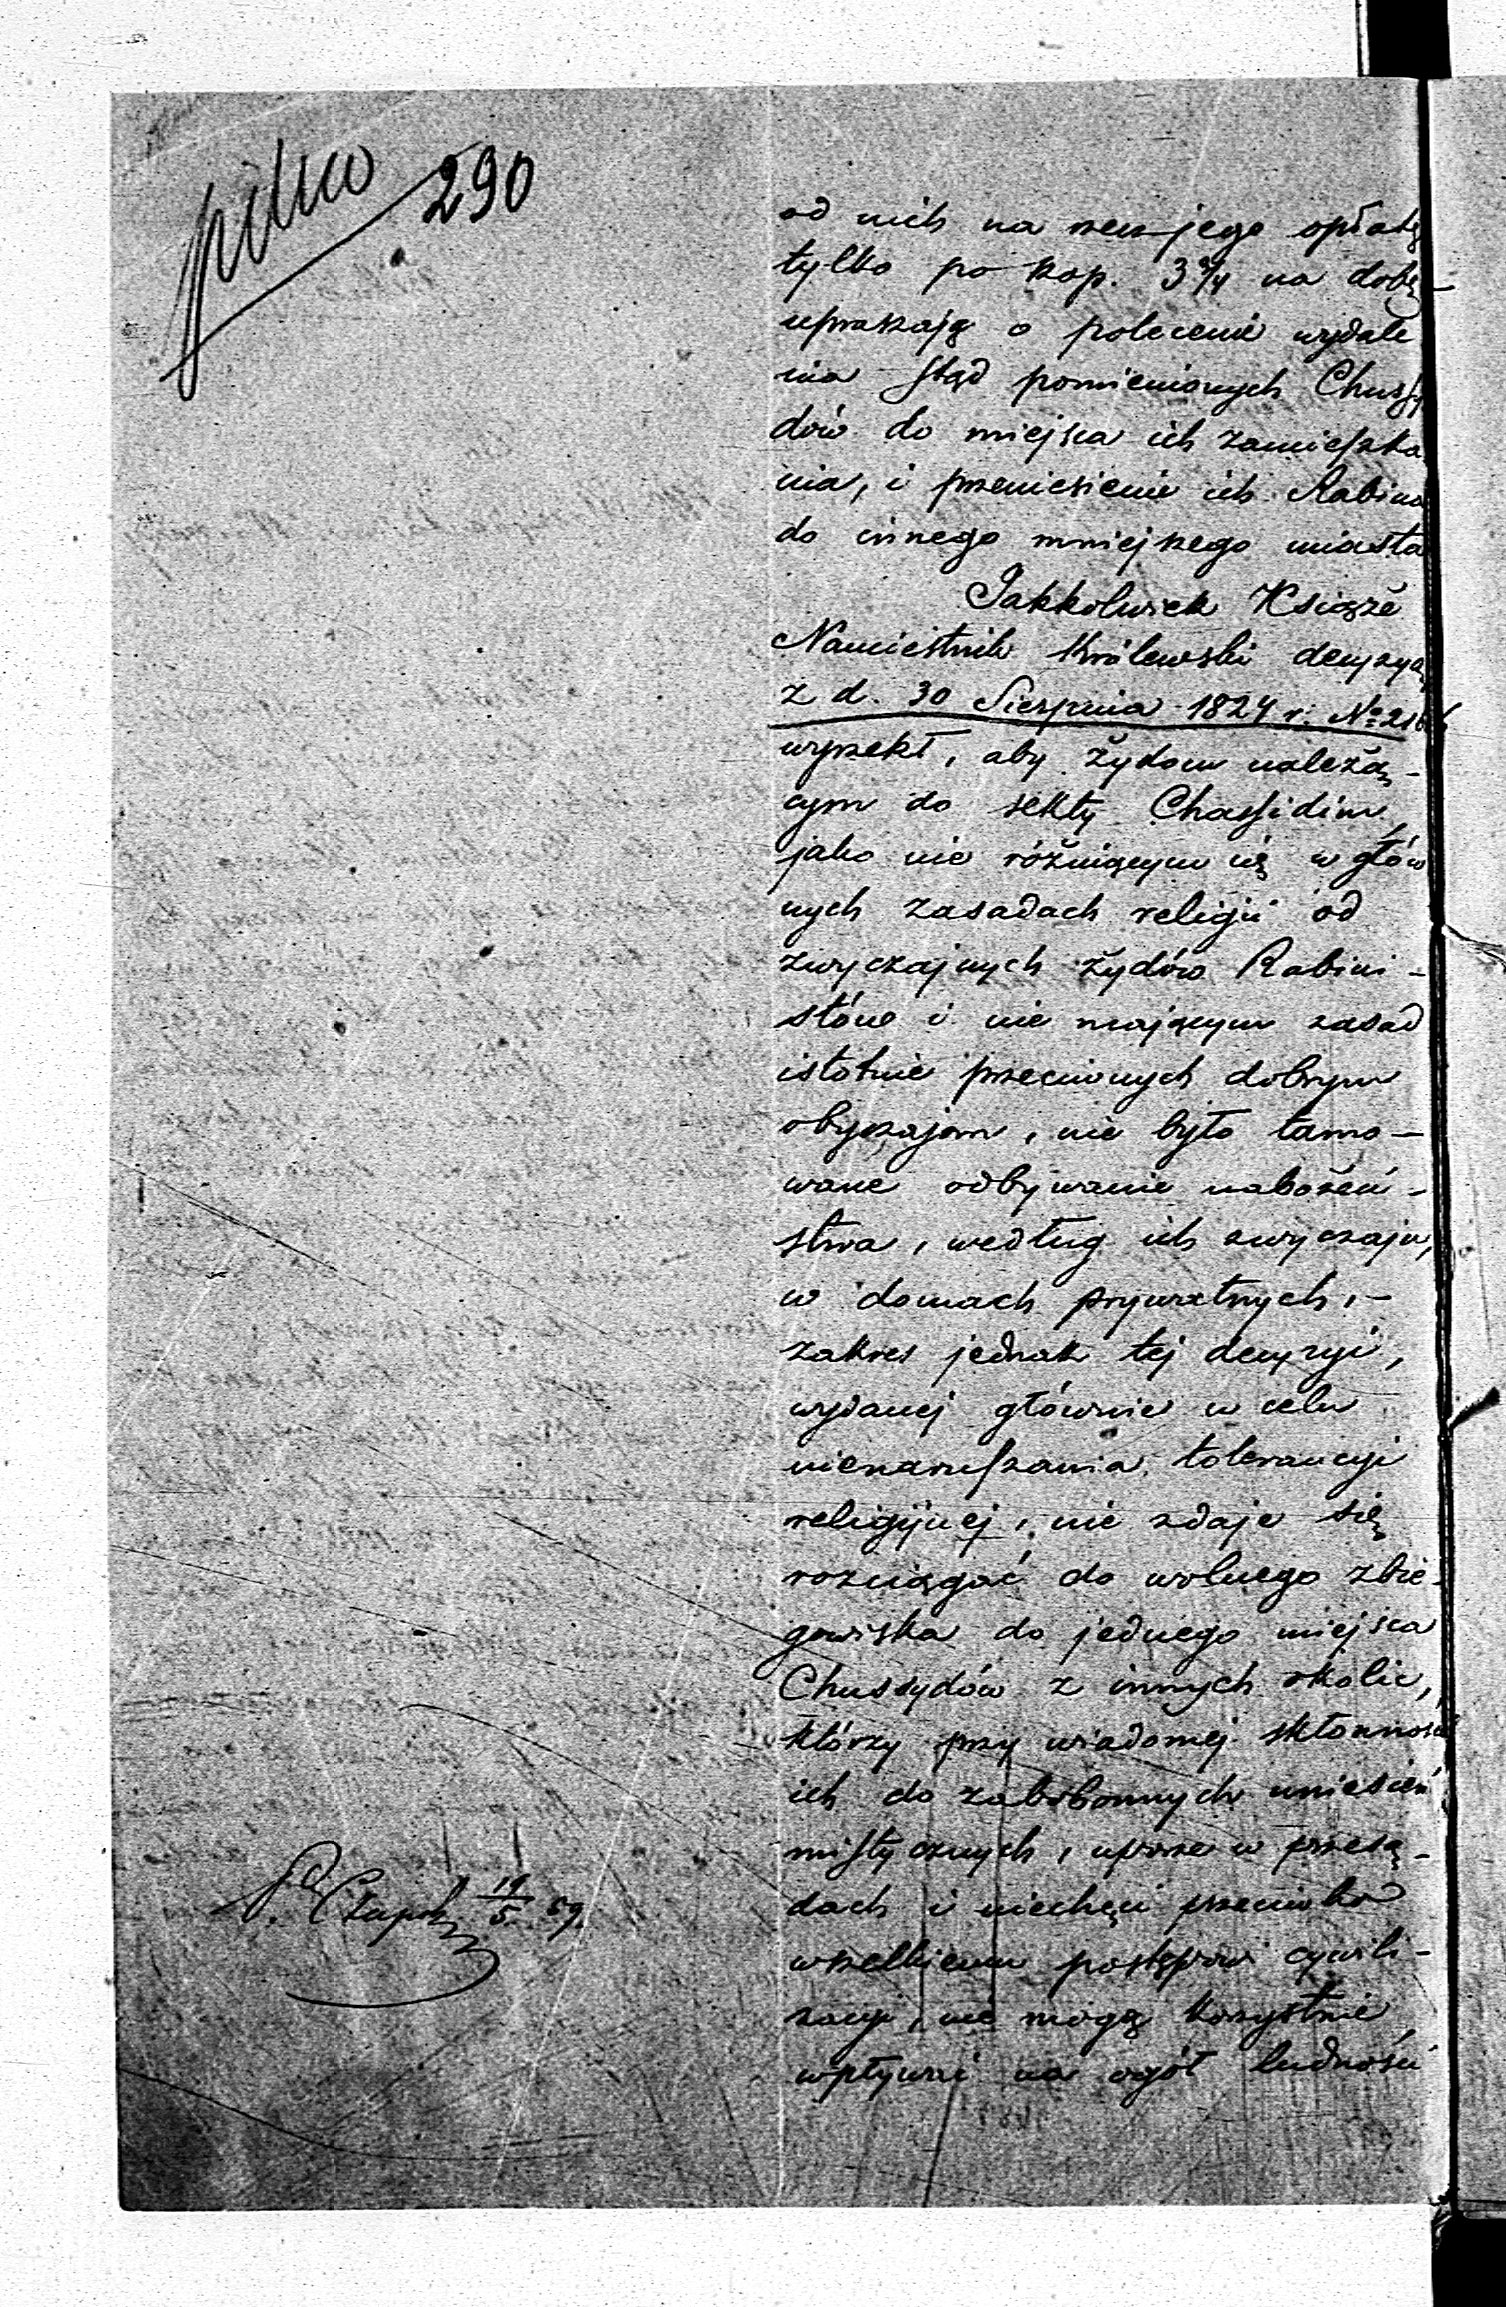 pilno
290
od nich na rzecz jego opłatę
tylko po kop. 3 3/4 na dobę
upraszają o polecenie wydale
nia stąd pomienionych Chussy
dów do miejsca ich zamieszka
nia, i przeniesienie ich Rabina
do innego mniejszego miasta
Jakkolwiek Książe
Namiestnik Królewski decyzyą
z d. 30 Sierpnia 1824 r. No
wyrzekł, aby Żydom należą-
cym do sekty Chassidim,
jako nie różniącym się w głów
nych zasadach religii od
zwyczajnych żydów Rabini-
stów i nie mającym zasad
istotnie przeciwnych dobrym
obyczajom, nie było tamo-
wane odbywanie nabożeń-
stwa, według ich zwyczaju,
w domach prywatnych,-
zakres jednak tej decyzyi,
wydanej głównie w celu
nienaruszania tolerancyi
religijnej, nie zdaje się
rozciągać do wolnego zbie-
gowiska do jednego miejsca
Chussydów z innych okolic,
którzy przy wiadomej skłonności
ich do zabobonnych uniesień
mistycznych, uporze w przesą-
dach i niechęci przeciwko
wszelkiemu postępowi cywili-
zacyi, nie mogą korzystnie
wpływać na ogół ludności
19/5 59.